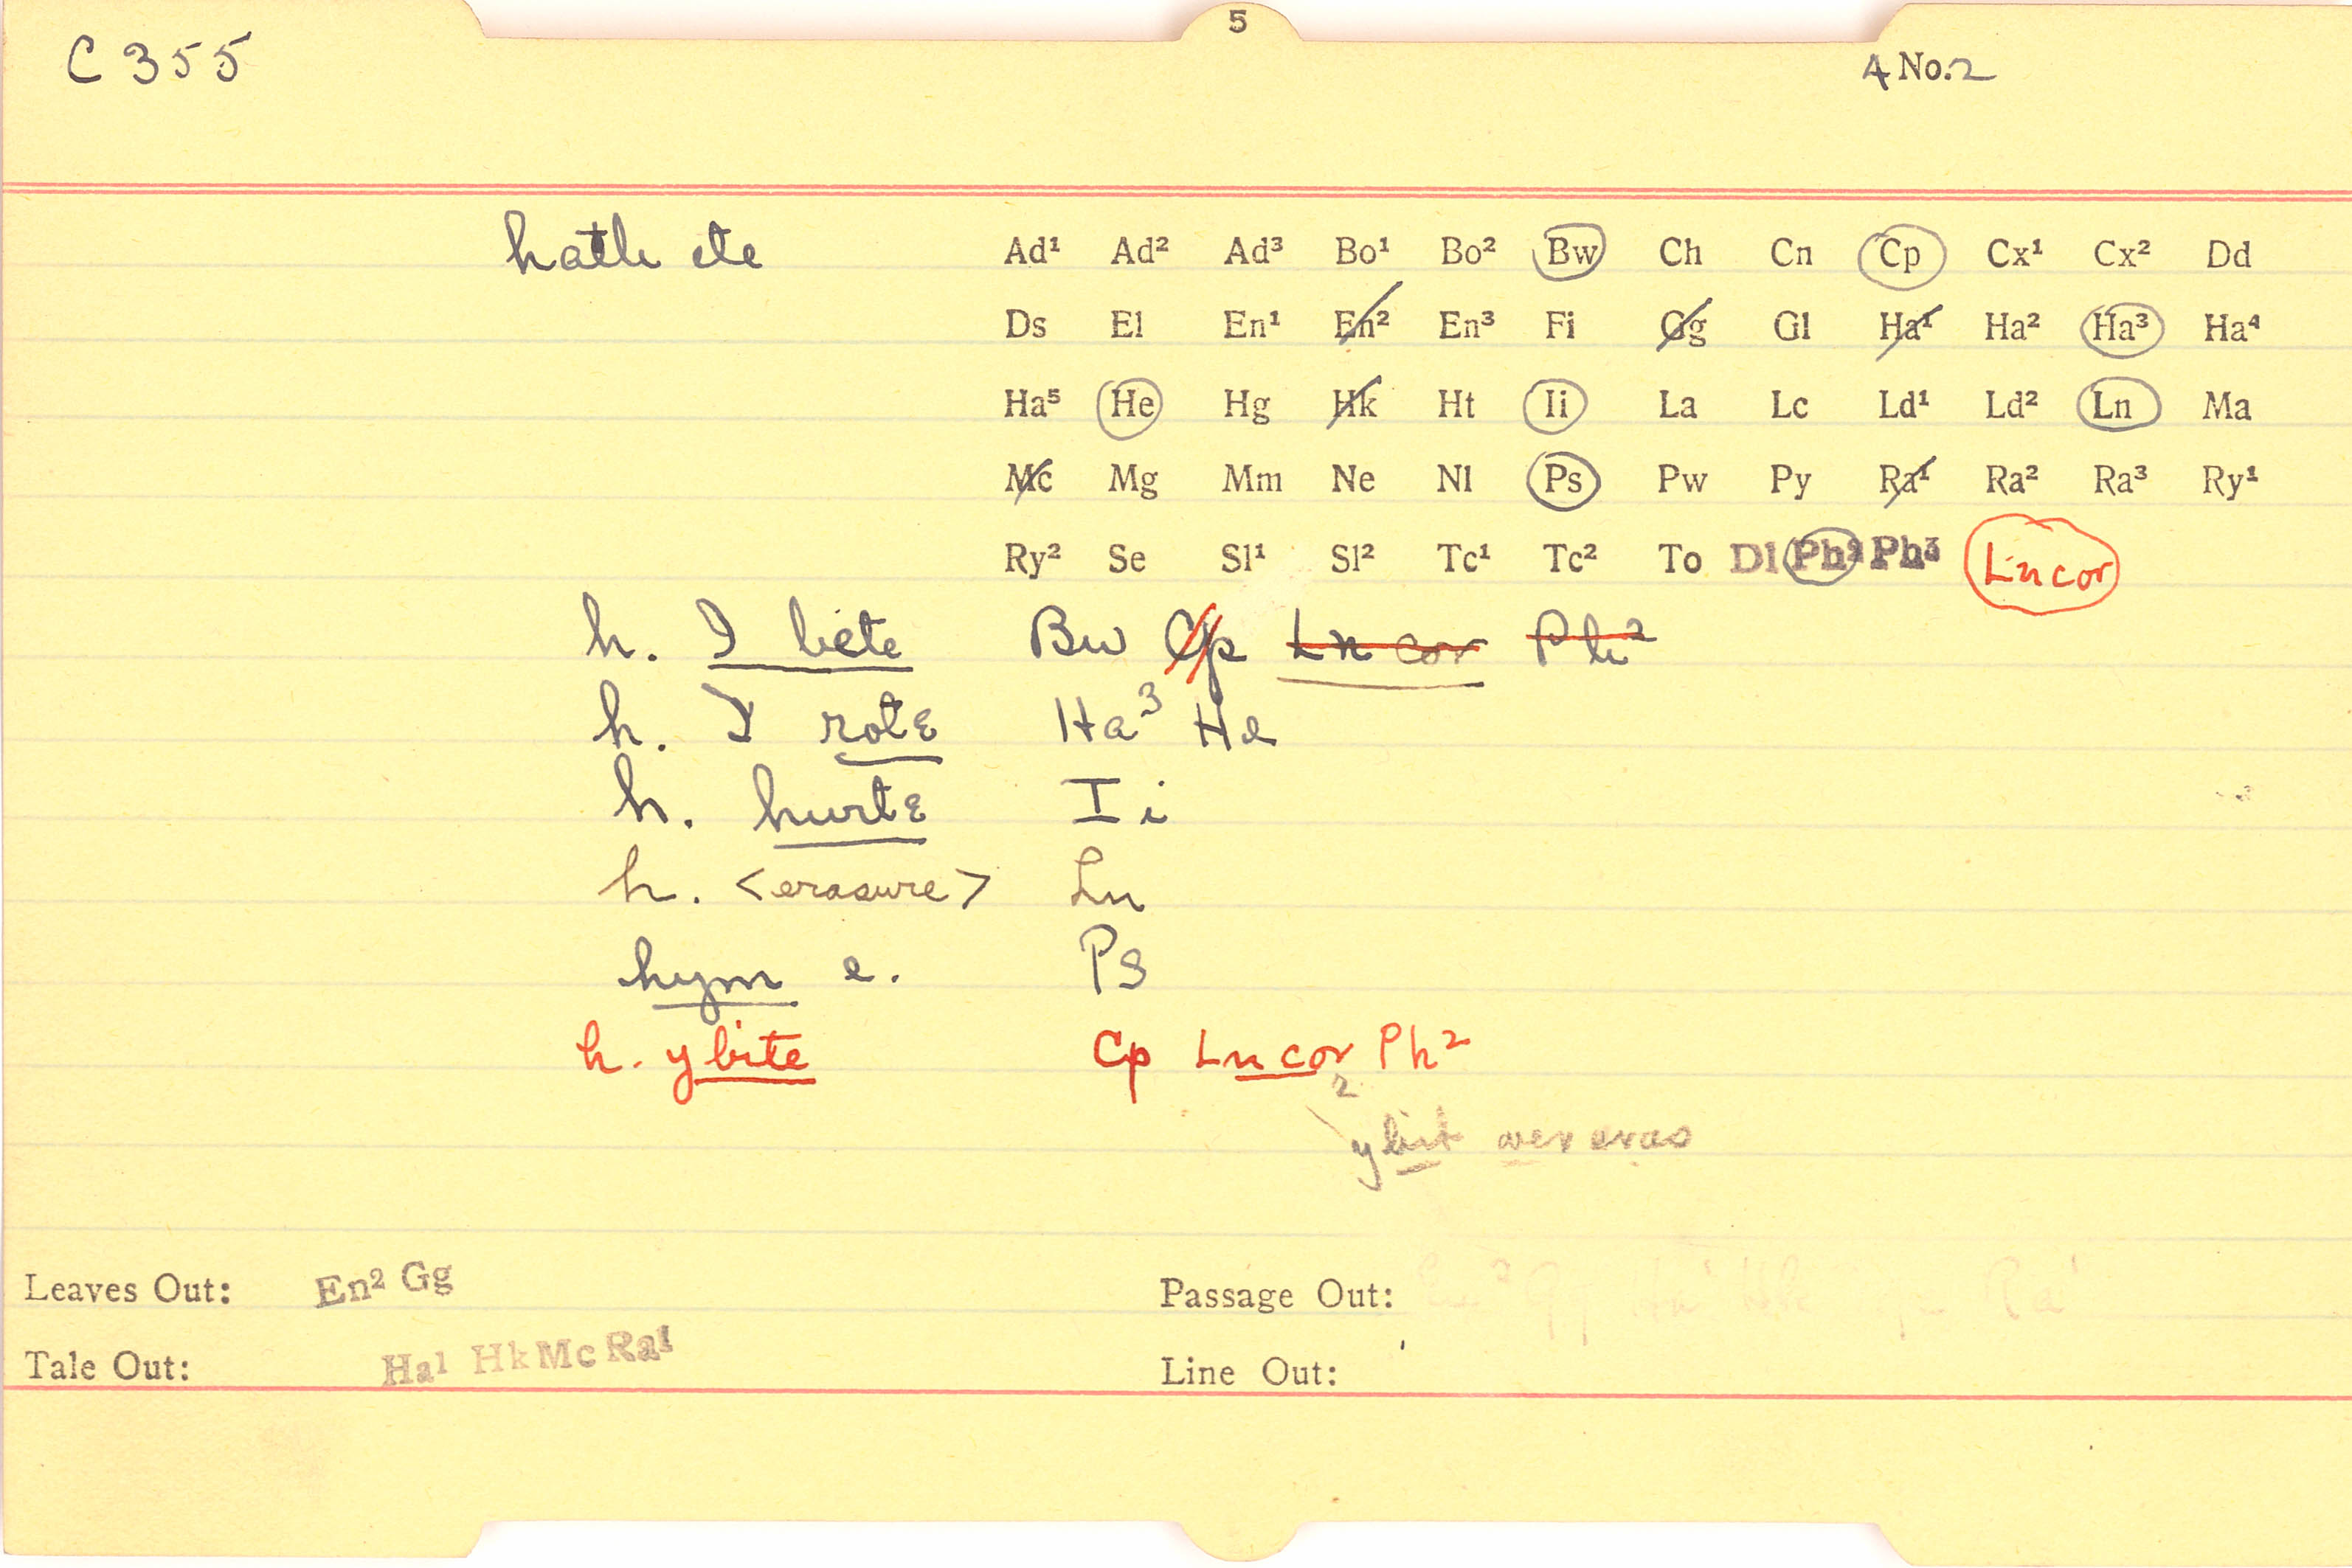 5
C 355
4 No. 2
hath ete
Ad¹ Ad² Ad³ Bo¹ Bo² Bw Ch Cn Cp Cx¹ Cx² Dd
Ds El En¹ En² En³ Fi Gg Gl Ha¹ Ha² Ha³ Ha⁴
Ha⁵ He Hg Hk Ht Ii La Lc Ld¹ Ld² Ln Ma
Mc Mg Mm Ne Nl Ps Pw Py Ra¹ Ra² Ra³ Ry¹
Ry² Se Sl¹ Sl² Tc¹ Tc² To Dl Ph² Ph³ Ln cor
h. I bete Bw Cp Ln cor Ph²
h. I rote Ha³ He
h. hurte Ii
h. <erasure> Ln
hym e. Ps
h. ybite Cp Ln cor Ph²
2
ybit over eras
Leaves Out: En² Gg
Passage Out: En² Gg Ha¹ Hk Ra¹
Tale Out: Ha¹ Hk Mc Ra¹
Line Out: